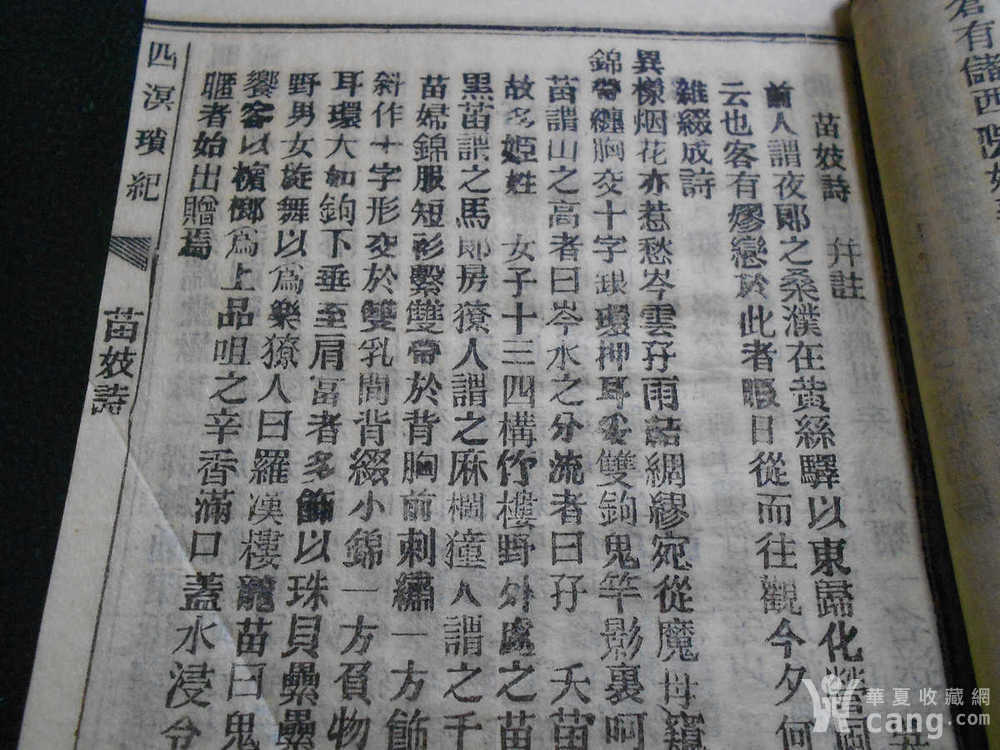 倉有儲西
苗妓詩　并註
前人謂夜郎之桑濮在黃絲驛以東歸化營
云也客有嫪戀於此者暇日從而往觀今夕何
雜綴成詩
異樣烟花亦惹愁岑雲孖雨結綢繆宛從魔
錦帶纏胸交十字銀環押耳妥雙鉤鬼竿影裏呵
苗謂山之高者曰岑水之分流者曰孖　夭苗
故多姬姓　女子十三四構竹樓野外處之苗
黑苗謂之馬郎房獠人謂之麻欄獞人謂之干
苗婦錦服短衫繫雙帶於背胸前刺繡一方飾
斜作十字形交於雙乳間背綴小錦一方負物
耳環大如鉤下垂至肩富者多飾以珠貝纍纍
野男女旋舞以為樂獠人曰羅漢樓龍苗曰鬼
饗客以檳榔為上品咀之辛香滿口蓋水浸令
暱者始出贈焉
四溟瑣紀
苗妓詩
華夏收藏網
cang.com